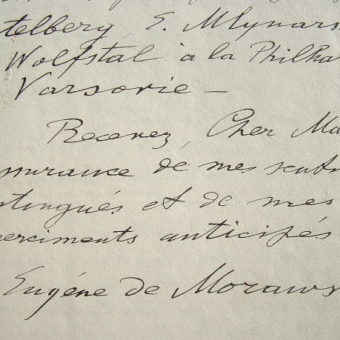 telberg, E. Mlynars
Wolfstal à la Philha
Varsovie —
Recevez, Cher Ma
ssurance de mes sent
stingués et de mes
erciments anticipés
Eugène de Moraws